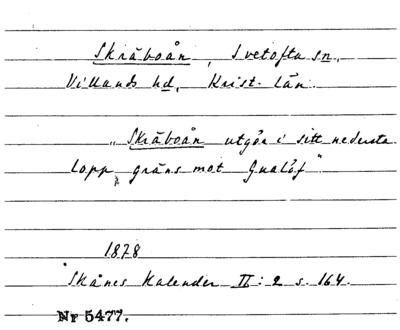 Skräboån, Ivetofta sn,
Villands hd, Krist. län.
"Skräboån utgör i sitt nedersta
lopp gräns mot Gualöf"
1878
Skånes Kalender II: 2 s. 164.
Nr 5477.